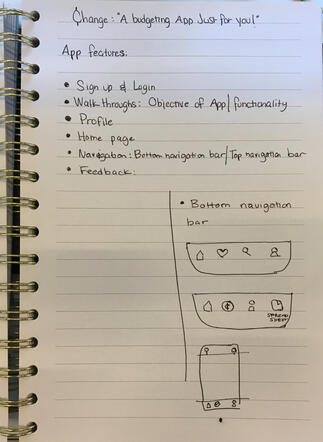 ¢hange: "A budgeting App Just for you!"
App features:
• Sign up & Login
• Walkthroughs: Objective of App/functionality
• Profile
• Home page
• Navigation: Bottom navigation bar/Top navigation bar
• Feedback:
• Bottom navigation
bar
SPREAD
SHEET